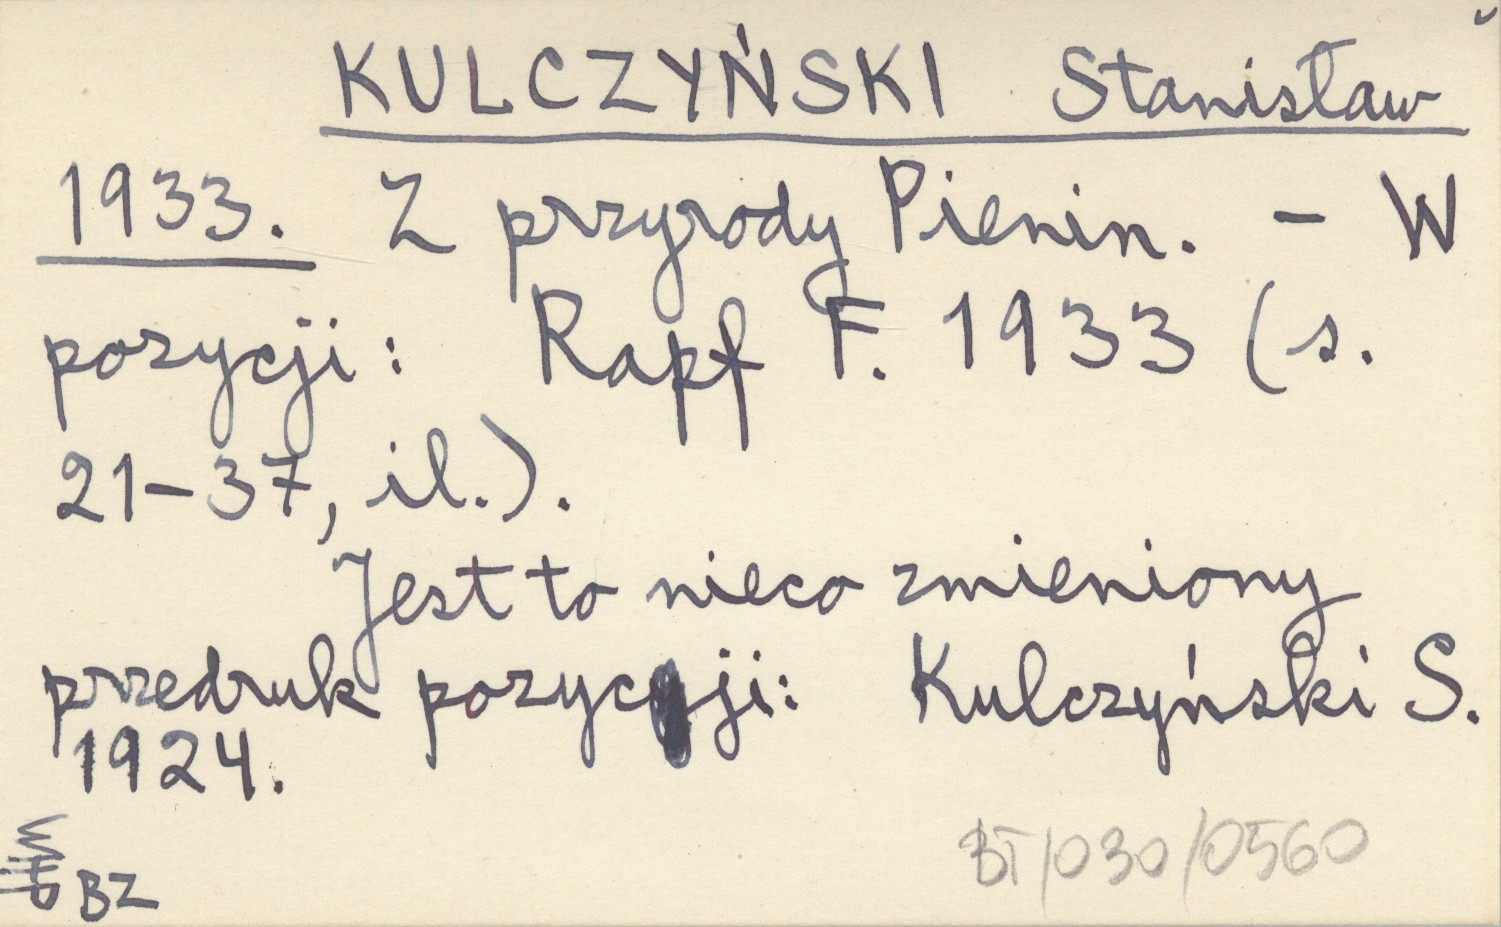 KULCZYŃSKI Stanisław
1933. Z przyrody Pienin. - W
pozycji: Rapf F. 1933 (s.
21-37, il.).
Jest to nieco zmieniony
przedruk pozycji: Kulczyński S.
1924.
BZ
BT/030/0560